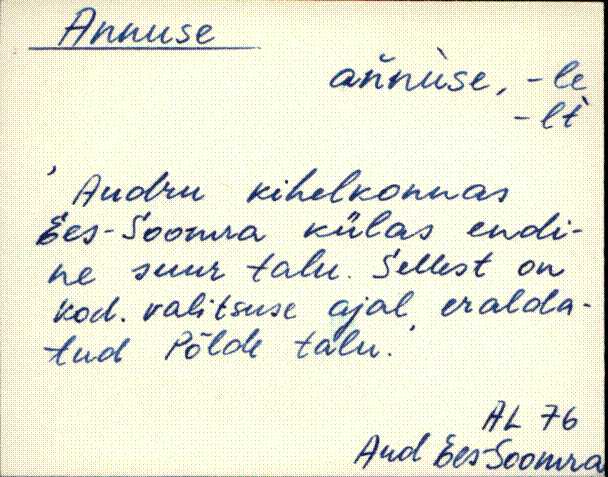 Annuse
ańnùse, -le
-lt̀
'Audru kihelkonnas
Ees-Soomra külas endi-
ne suur talu. Sellest on
kod. valitsuse ajal eralda-
tud Põlde talu.'
AL 76
Aud Ees-Soomra